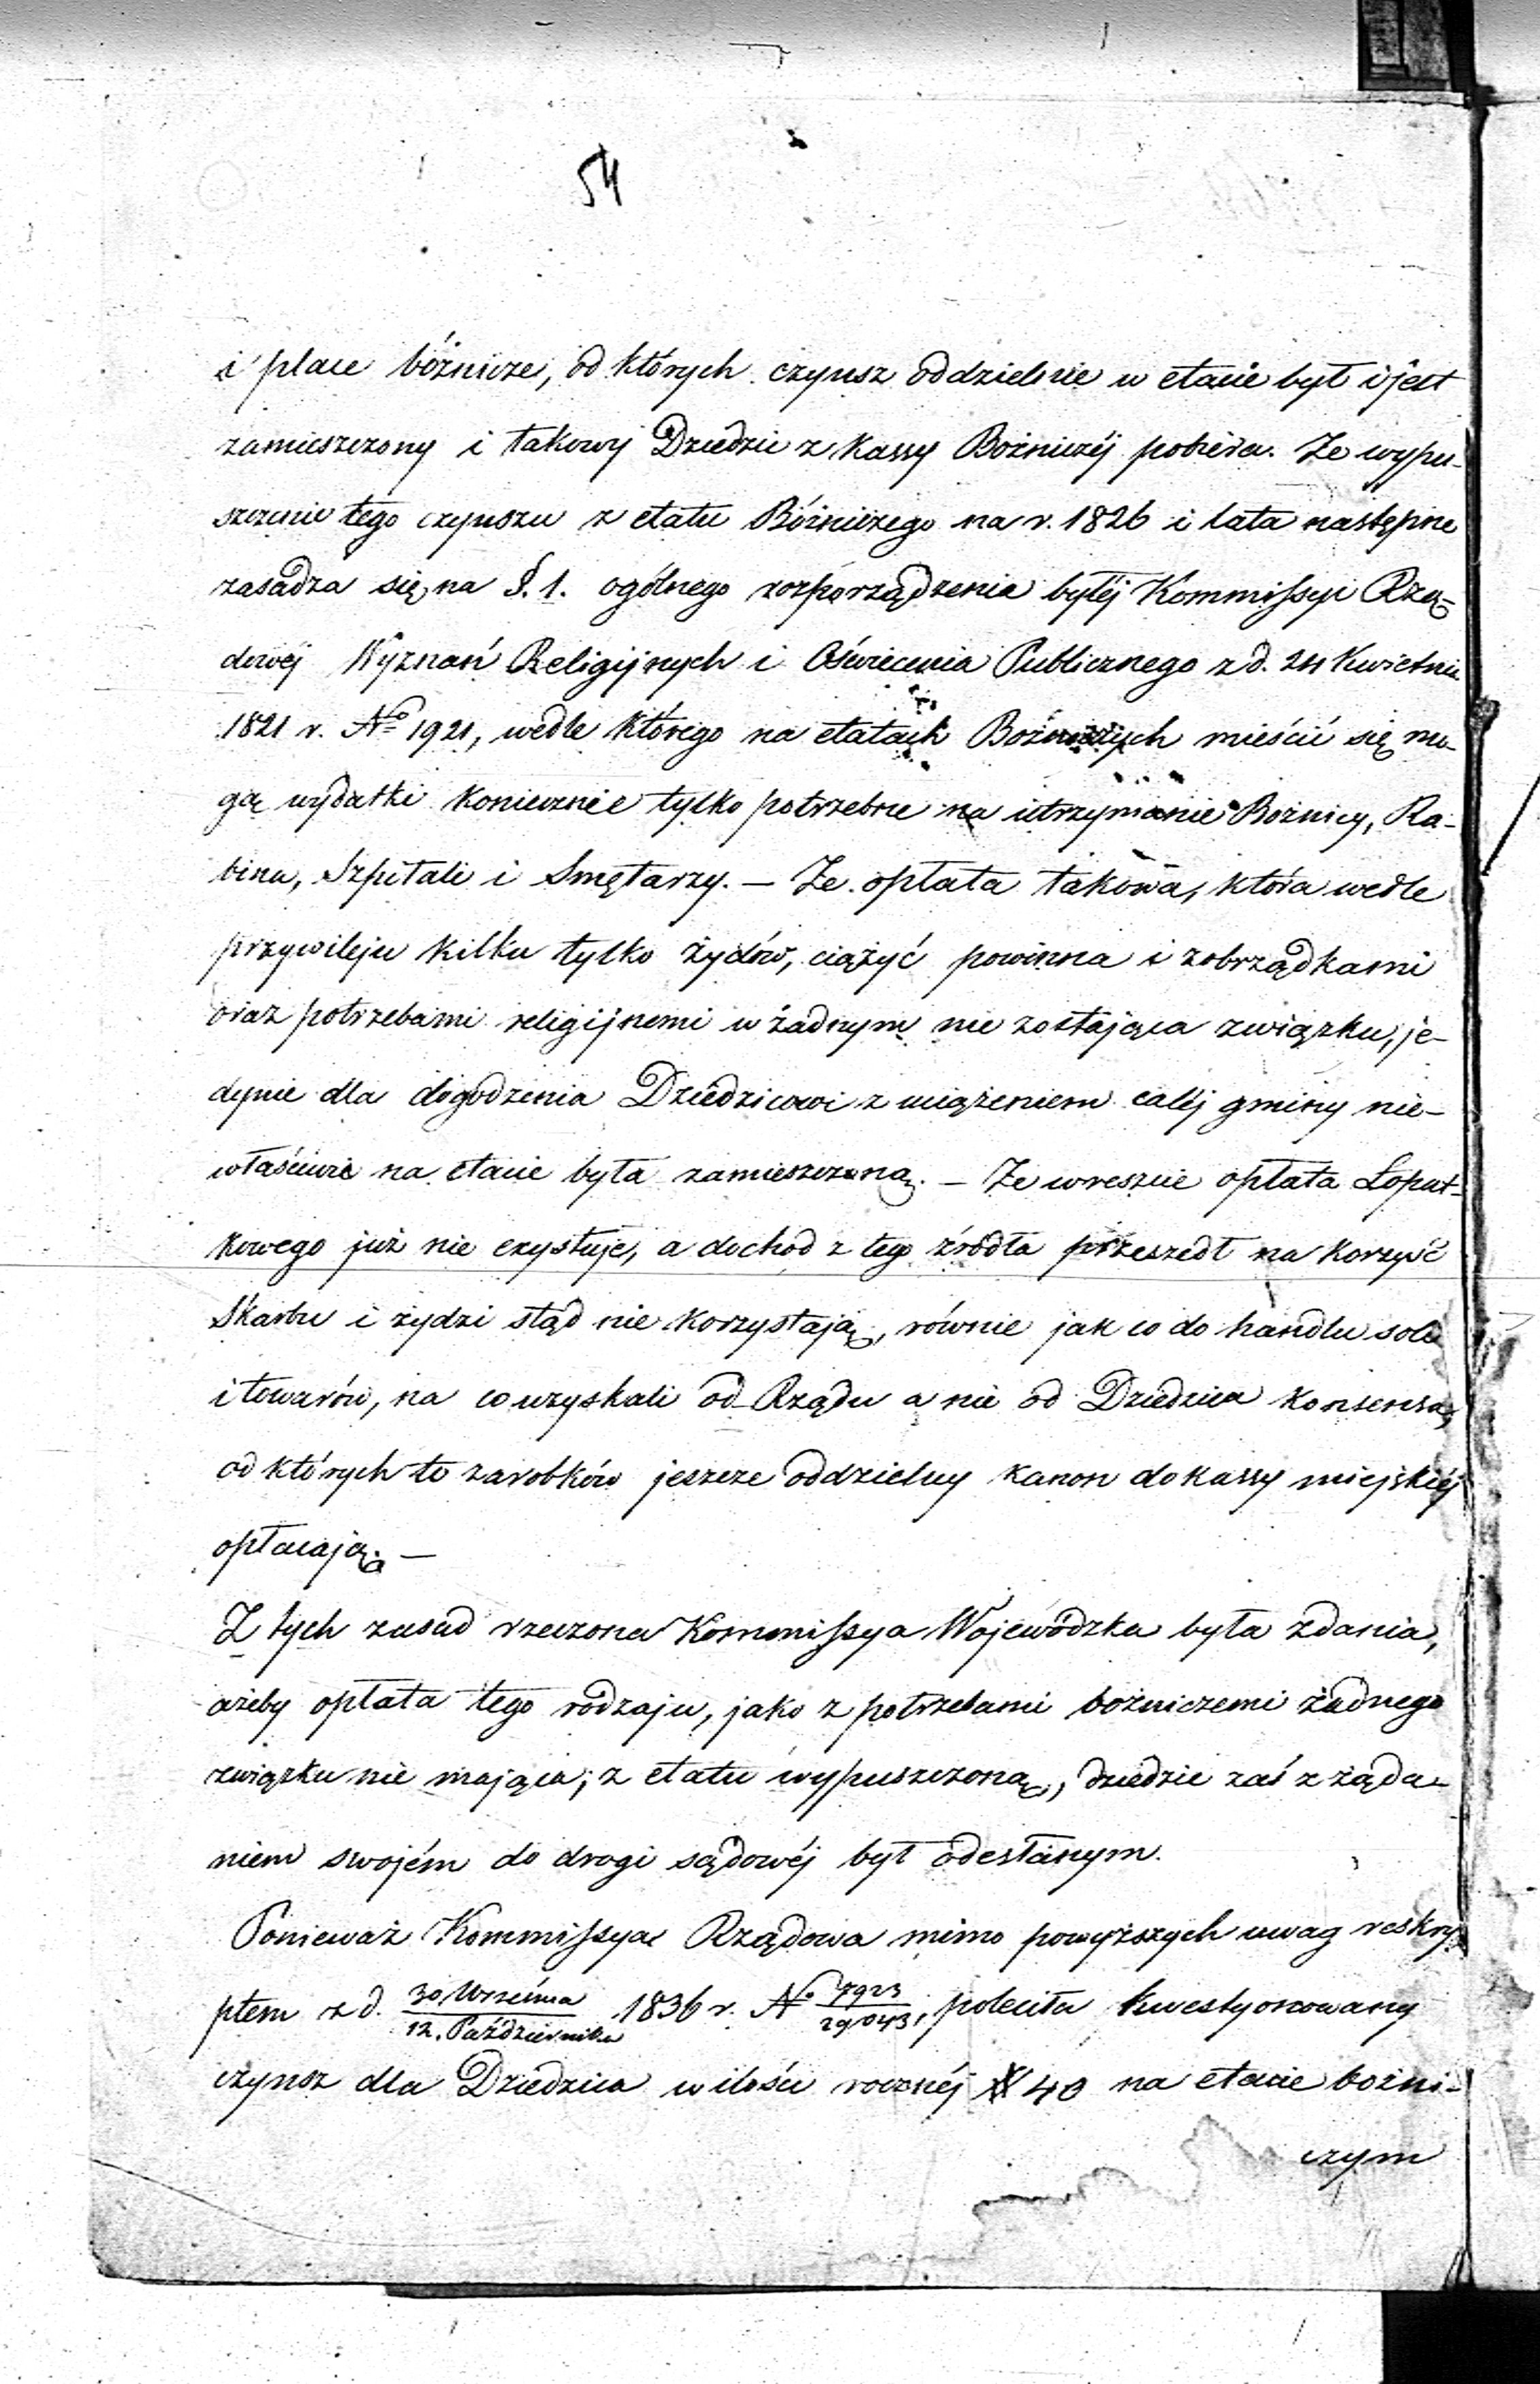 54
i place bóźnicze, od których czynsz oddzielnie w etacie był i jest
zamieszczony i takowy Dziedzic z kassy Bożniczéj pobiéra. Że wypu-
szczenie tego czynszu z etatu Bóżniczego na r. 1826 i lata następne
zasadza się na §. 1. ogólnego rozporządzenia byłéj Kommissyi Rzą-
dowéj Wyznań Religijnych i Oświecenia Publicznego z d. 24 Kwietnia
1821 r. No 1921, wedle którego na etatach Bożniczych mieścić się mo-
gą wydatki koniecznie tylko potrzebne na utrzymanie Bożnicy, Ra-
bina, Szpitali i Smętarzy. — Że opłata takowa, która wedle
przywileju kilku tylko żydów, ciążyć powinna i z obrządkami
oraz potrzebami religijnemi w żadnym nie zostająca związku, je-
dynie dla dogodzenia Dziedzicowi z uciążeniem całéj gminy nie-
właściwie na etacie była zamieszczoną. — Że wreszcie opłata Łopat-
kowego już nie exystuje, a dochod z tego źrodła przeszedł na korzyść
Skarbu i żydzi stąd nie korzystają, równie jak co do handlu soli
i towarów, na co uzyskali od Rządu a nie od Dziedzica konsensa,
od których to zarobków jeszcze oddzielny kanon do kassy miejskiéj
opłacają. —
Z tych zasad rzeczona Kommissya Wojewódzka była zdania,
ażeby opłata tego rodzaju, jako z potrzebami bożniczemi żadnego
związku nie mająca, z etatu wypuszczoną, dziedzic zaś z żąda-
niem swojém do drogi sądowéj był odesłanym.
Ponieważ Kommissya Rządowa mimo powyższych uwag reskry-
ptem z d. 30 Września / 12. Października 1836 r. No 7923 / 29043, poleciła kwestyonowany
czynsz dla Dziedzica w ilości rocznéj 40 na etacie bożni-
czym